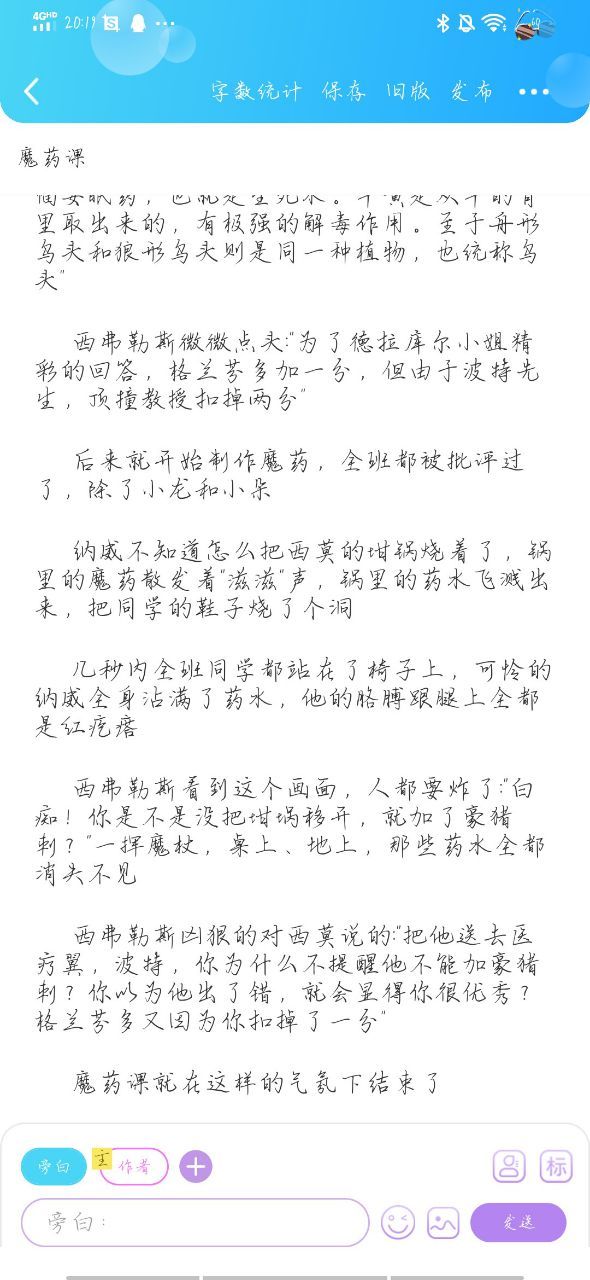 4GHD 20:19
字数统计 保存 旧版 发布
魔药课
里取出来的，有极强的解毒作用。至于舟形
乌头和狼形乌头则是同一种植物，也统称乌
头"
西弗勒斯微微点头:"为了德拉库尔小姐精
彩的回答，格兰芬多加一分，但由于波特先
生，顶撞教授扣掉两分"
后来就开始制作魔药，全班都被批评过
了，除了小龙和小朵
纳威不知道怎么把西莫的坩锅烧着了，锅
里的魔药散发着"滋滋"声，锅里的药水飞溅出
来，把同学的鞋子烧了个洞
几秒内全班同学都站在了椅子上，可怜的
纳威全身沾满了药水，他的胳膊跟腿上全都
是红疙瘩
西弗勒斯看到这个画面，人都要炸了:"白
痴！你是不是没把坩埚移开，就加了豪猪
刺？"一挥魔杖，桌上、地上，那些药水全都
消失不见
西弗勒斯凶狠的对西莫说的:"把他送去医
疗翼，波特，你为什么不提醒他不能加豪猪
刺？你以为他出了错，就会显得你很优秀？
格兰芬多又因为你扣掉了一分"
魔药课就在这样的气氛下结束了
旁白 主 作者 标
旁白： 发送